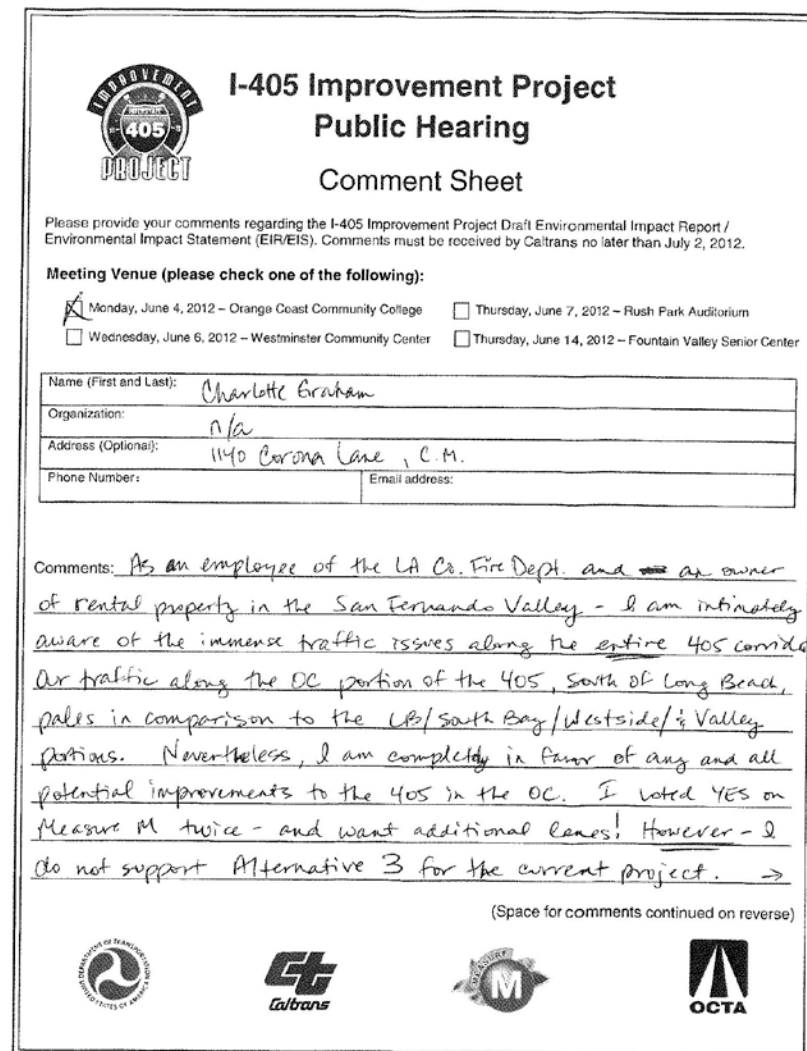 IMPROVEMENT
INTERSTATE
405
PROJECT
I-405 Improvement Project
Public Hearing
Comment Sheet
Please provide your comments regarding the I-405 Improvement Project Draft Environmental Impact Report /
Environmental Impact Statement (EIR/EIS). Comments must be received by Caltrans no later than July 2, 2012.
Meeting Venue (please check one of the following):
Monday, June 4, 2012 – Orange Coast Community College
Thursday, June 7, 2012 – Rush Park Auditorium
Wednesday, June 6, 2012 – Westminster Community Center
Thursday, June 14, 2012 – Fountain Valley Senior Center
Name (First and Last): Charlotte Graham
Organization: n/a
Address (Optional): 1140 Corona Lane, C.M.
Phone Number:
Email address:
Comments: As an employee of the LA Co. Fire Dept. and an owner
of rental property in the San Fernando Valley - I am intimately
aware of the immense traffic issues along the entire 405 corrido
Our traffic along the OC portion of the 405, South of Long Beach,
pales in comparison to the LB/South Bay/Westside/& Valley
portions. Nevertheless, I am completely in favor of any and all
potential improvements to the 405 in the OC. I voted YES on
Measure M twice - and want additional lanes! However - I
do not support Alternative 3 for the current project. →
(Space for comments continued on reverse)
DEPARTMENT OF TRANSPORTATION
UNITED STATES OF AMERICA
Ct
Caltrans
MEASURE
M
OCTA